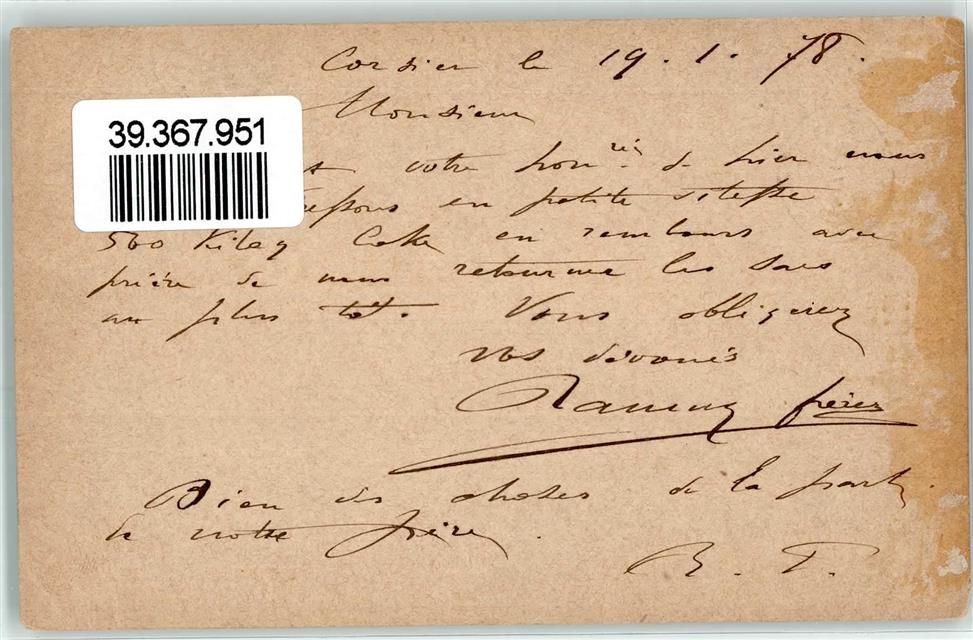 Corsier le 19. 1. 78.
Monsieur
39.367.951
votre hon.rée de hier nous
en petite vitesse
500 Kilog Coke en rembours avec
prière de nous retourner les sacs
au plus tôt. Vous obligerez
vos dévoués
frères
Bien des choses de la part
de notre frère.
R. F.